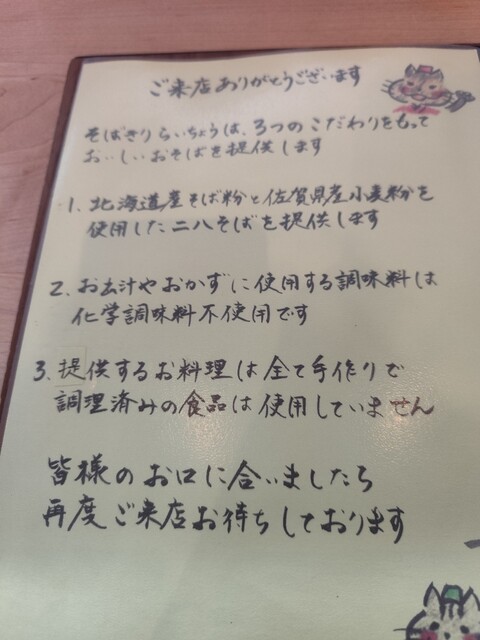 ご来店ありがとうございます
そばきりらいちょうは、3つのこだわりをもって
おいしいおそばを提供します
1. 北海道産そば粉と佐賀県産小麦粉を
使用した二八そばを提供します
2. お出汁やおかずに使用する調味料は
化学調味料不使用です
3. 提供するお料理は全て手作りで
調理済みの食品は使用していません
皆様のお口に合いましたら
再度ご来店お待ちしております